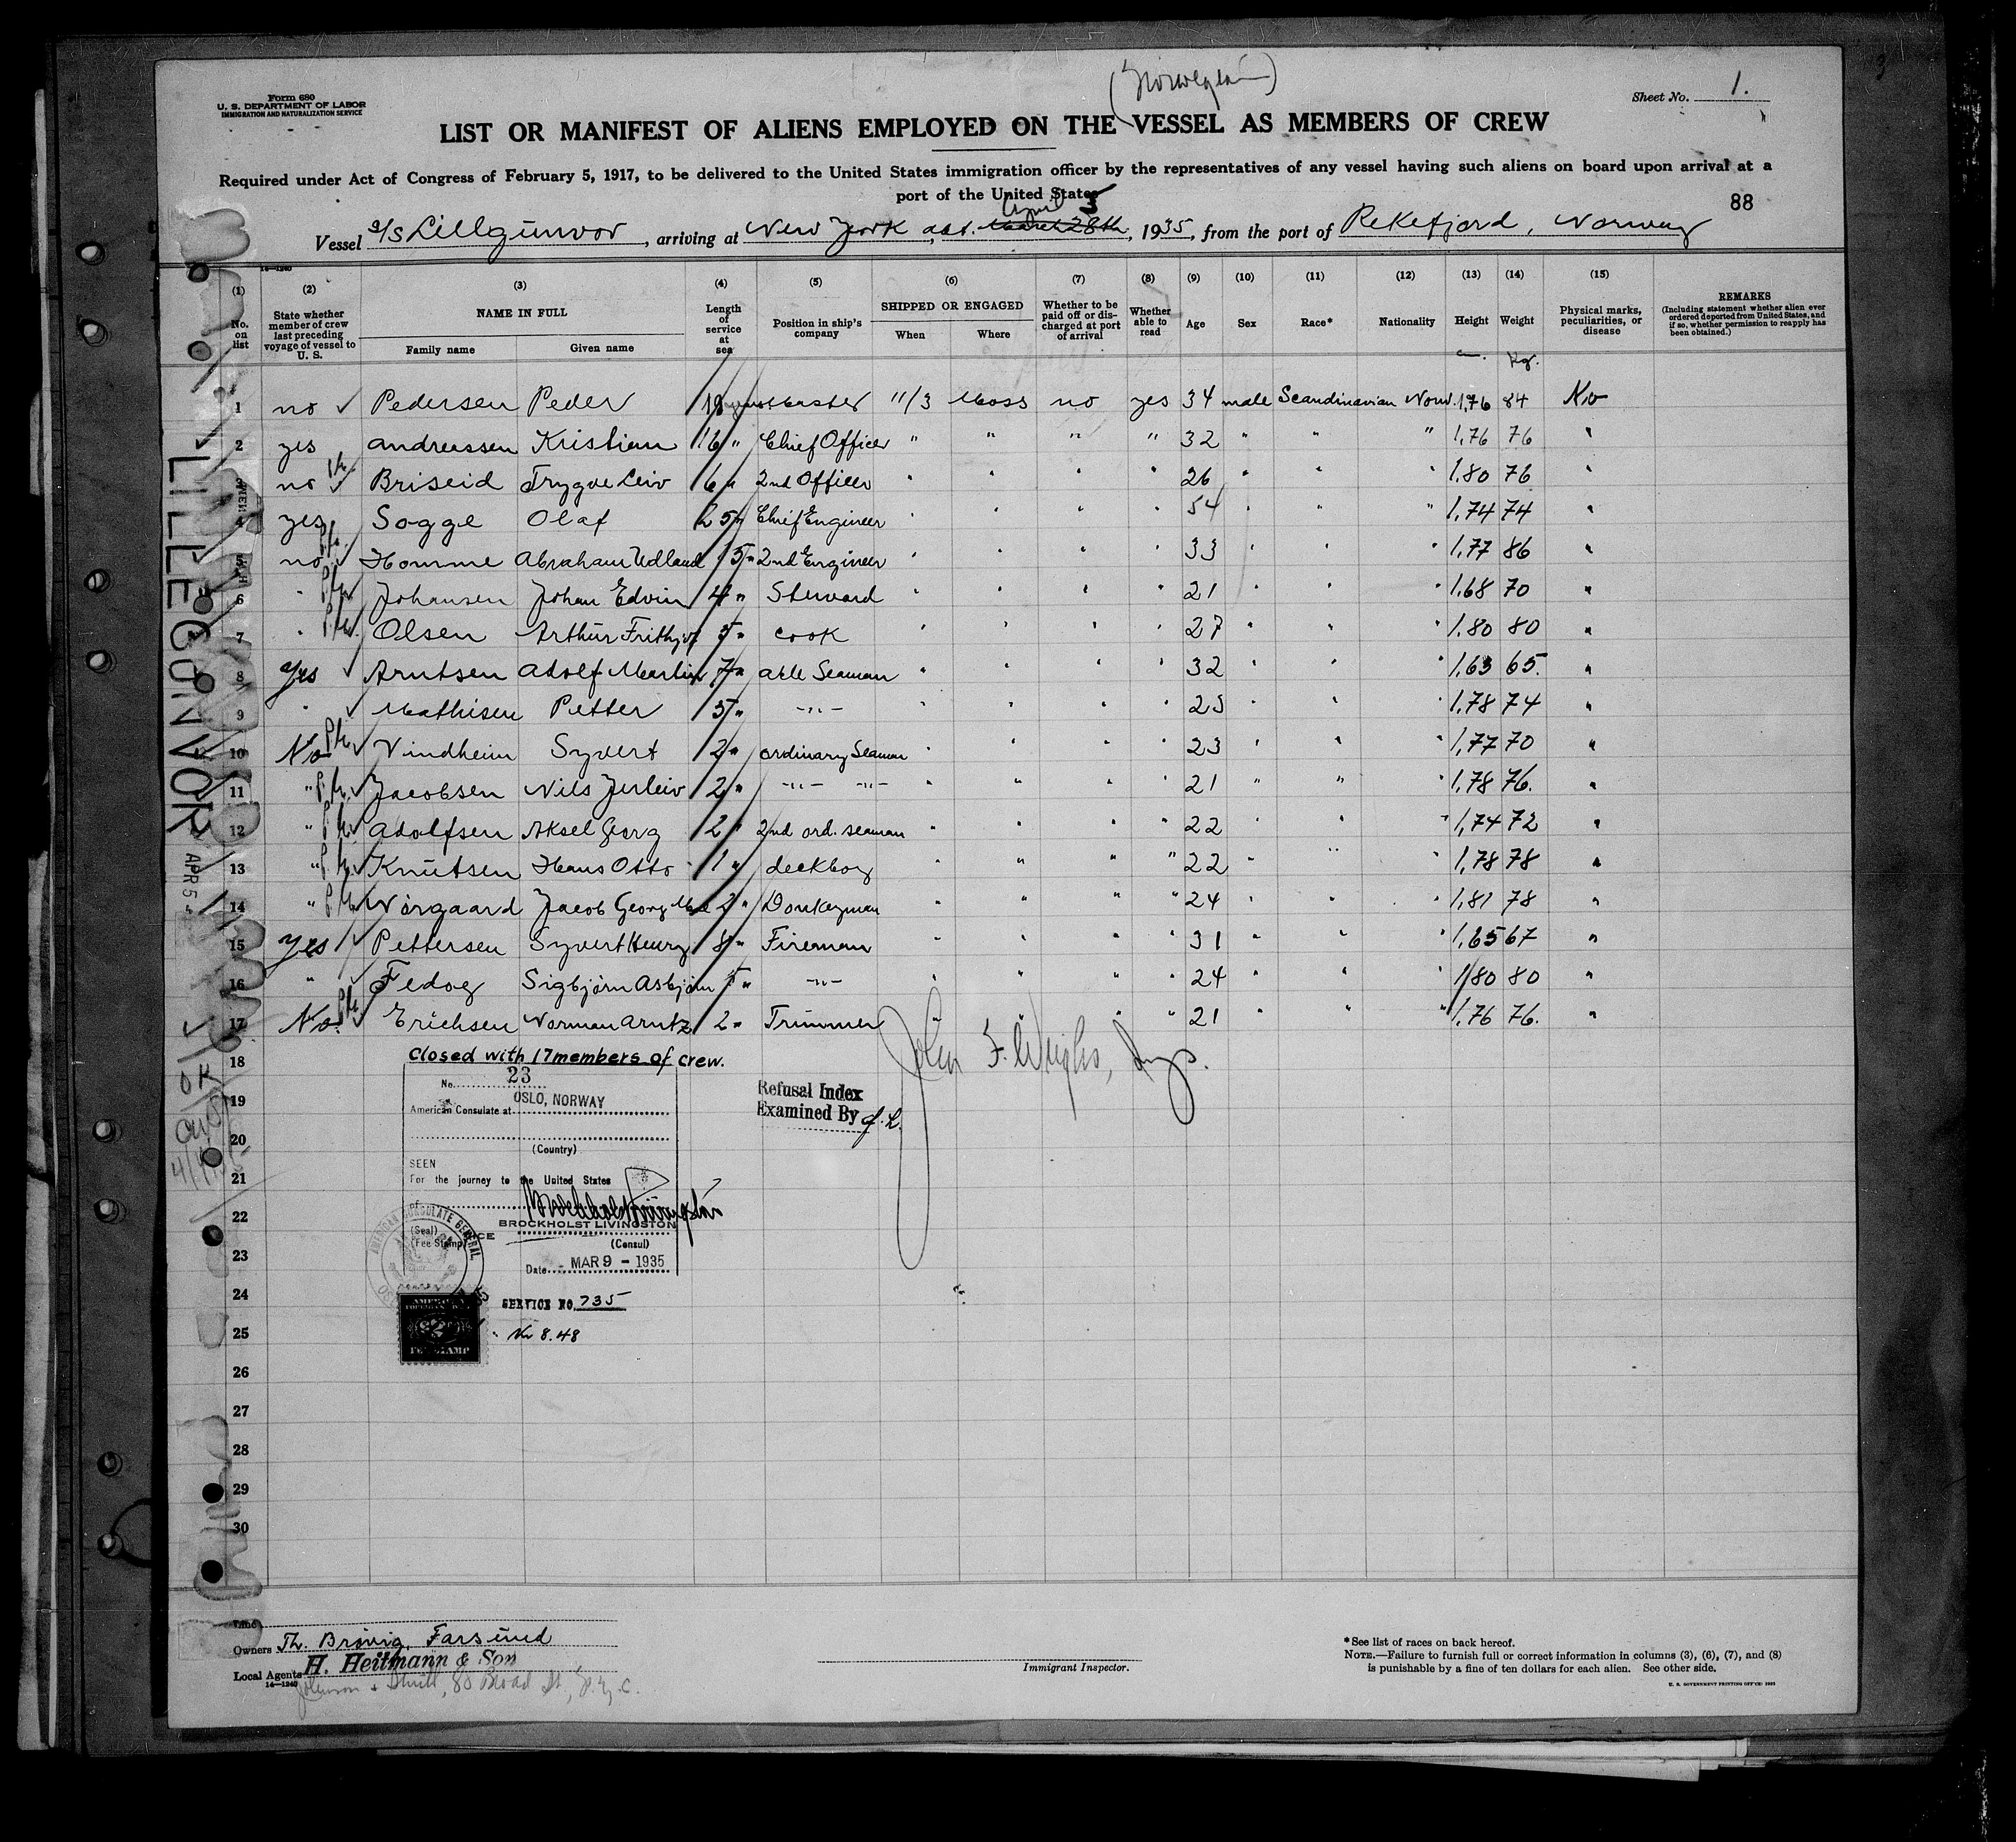 (Norwegian)
Form 680
U. S. DEPARTMENT OF LABOR
IMMIGRATION AND NATURALIZATION SERVICE
Sheet No. 1.
LIST OR MANIFEST OF ALIENS EMPLOYED ON THE VESSEL AS MEMBERS OF CREW
Required under Act of Congress of February 5, 1917, to be delivered to the United States immigration officer by the representatives of any vessel having such aliens on board upon arrival at a
port of the United States
88
April 5
Vessel s/s Lillgunvor, arriving at New York, abt. March 28th, 1935, from the port of Rekefjord, Norway
14—1240
(1) (2) (3) (4) (5) (6) (7) (8) (9) (10) (11) (12) (13) (14) (15)
No. on list
State whether member of crew last preceding voyage of vessel to U. S.
NAME IN FULL
Family name Given name
Length of service at sea
Position in ship's company
SHIPPED OR ENGAGED
When Where
Whether to be paid off or discharged at port of arrival
Whether able to read
Age
Sex
Race*
Nationality
Height
Weight
Physical marks, peculiarities, or disease
REMARKS
(Including statement whether alien ever ordered deported from United States, and if so, whether permission to reapply has been obtained.)
Kg.
1 no Pedersen Peder 18 years Master 11/3 Moss no yes 34 male Scandinavian Norw. 1,76 84 No
2 yes Andreassen Kristian 16 " Chief Officer " " " " 32 " " " 1,76 76 "
3 no Briseid Trygve Leiv 6 " 2nd Officer " " " " 26 " " " 1.80 76 "
4 yes Sogge Olaf 25 " Chief Engineer " " " " 54 " " " 1,74 74 "
5 no Homme Abraham Udland 15 " 2nd Engineer " " " " 33 " " " 1,77 86 "
6 " Johansen Johan Edvin 4 " Steward " " " " 21 " " " 1,68 70 "
7 " Olsen Arthur Frithjof 5 " cook " " " " 27 " " " 1.80 80 "
8 Yes Arntsen Adolf Martin 7 " able Seaman " " " " 32 " " " 1,63 65. "
9 " Mathisen Petter 5 " -"- " " " " 25 " " " 1,78 74 "
10 No Vindheim Syvert 2 " ordinary Seaman " " " " 23 " " " 1,77 70 "
11 " Jacobsen Nils Jerleiv 2 " -"- -"- " " " " 21 " " " 1,78 76. "
12 " Adolfsen Aksel Georg 2 " 2nd ord. seaman " " " " 22 " " " 1,74 72 "
13 " Knutsen Hans Otto 1 " deckboy " " " " 22 " " " 1,78 78 "
14 " Nørgaard Jacob Georg 2 " Donkeyman " " " " 24 " " " 1,81 78 "
15 Yes Pettersen Syvert Henry 8 " Fireman " " " " 31 " " " 1,65 67 "
16 " Fedog Sigbjørn Asbjørn 5 " -"- " " " " 24 " " " 1,80 80 "
17 No. Erichsen Norman Arntz 2 " Trimmer " " " " 21 " " " 1,76 76. "
18 Closed with 17 members of crew.
19
20
21
22
23
24
25
26
27
28
29
30
No. 23
American Consulate at OSLO, NORWAY
(Country)
SEEN
For the journey to the United States
BROCKHOLST LIVINGSTON
(Seal)
(Fee Stamp)
(Consul)
Date MAR 9 - 1935
AMERICAN CONSULATE GENERAL
SERVICE NO. 735
Kr 8.48
Refusal Index
Examined By J. L.
LILLEGUNVOR
APR 5
OK
Owners Th. Brøvig, Farsund
Local Agents H. Heitmann & Son
14—1240
80 Broad St, N.Y.C.
Immigrant Inspector.
*See list of races on back hereof.
NOTE.—Failure to furnish full or correct information in columns (3), (6), (7), and (8)
is punishable by a fine of ten dollars for each alien. See other side.
U. S. GOVERNMENT PRINTING OFFICE: